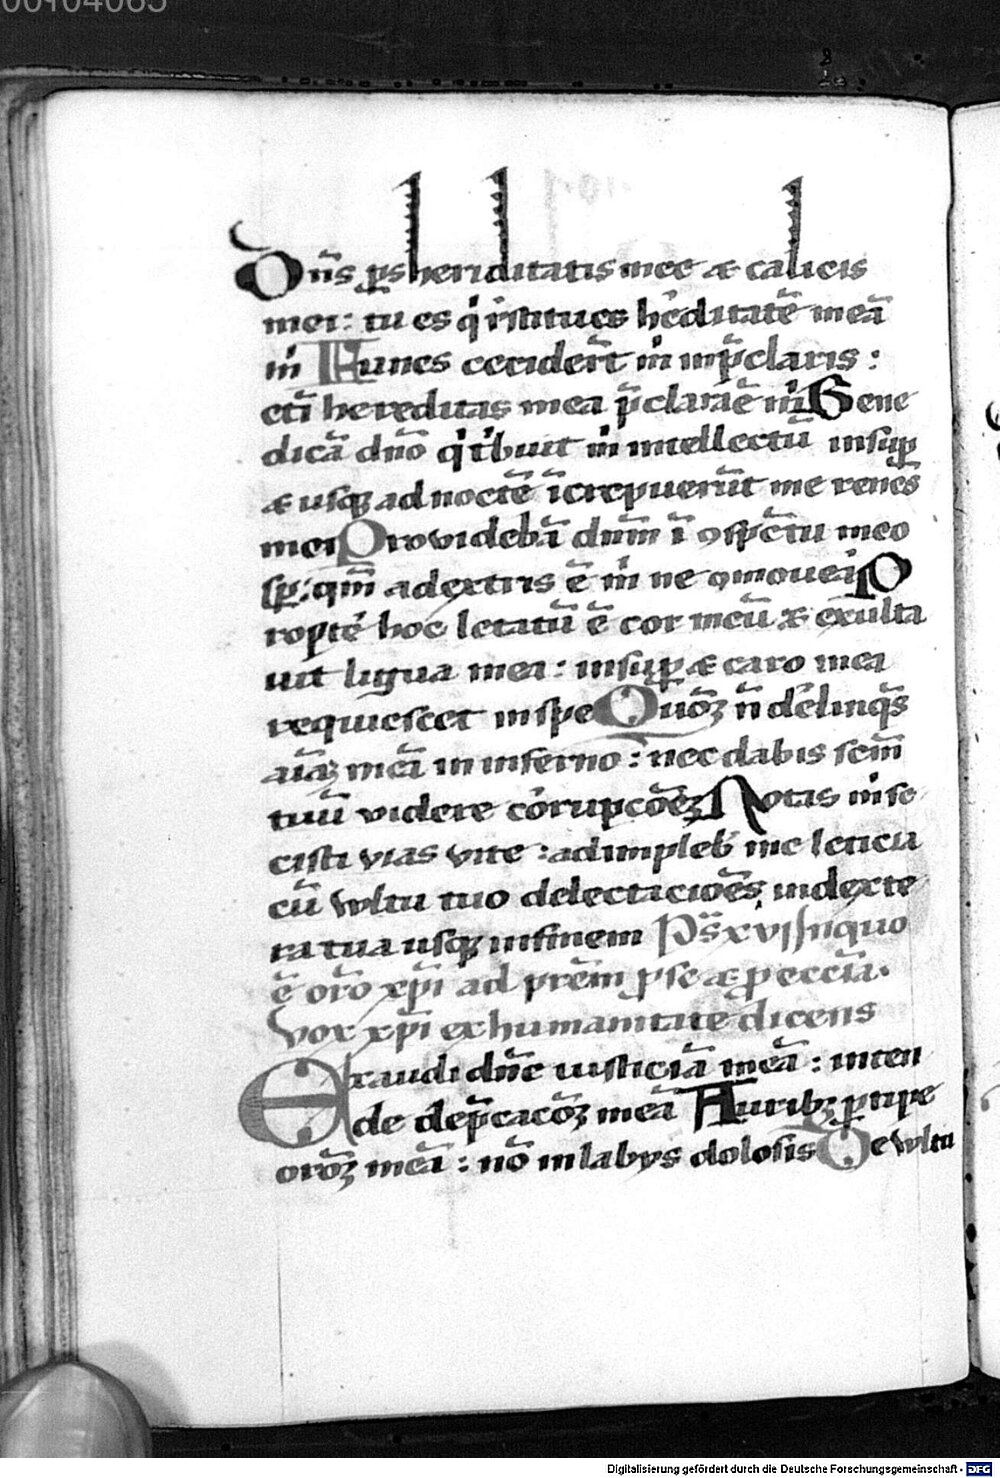 00104065
Dn̄s p̄s heriditatis mee & calicis
mei: tu es q̇ restitues hēditatē meā
ṁ Funes ceciderūt ṁ in p̄claris:
etī hereditas mea p̄clara ē ṁ Bene
dicā dn̄o q̇ tͥbuit ṁ intellectū insuꝑ
& usqꝫ ad noctē īcrepuerūt me renes
mei Providebā dn̄m ī ꝯspc̄tu meo
sp̄: qm̄ a dextris ē ṁ ne ꝯmovear P
ropte hoc letatū ē cor meū & exulta
uit ligua mea: insuꝑ & caro mea
requiescet in spe Quōꝫ n̄ delinq̄s
aīaꝫ meā in inferno: nec dabis scm̄
tuū videre corupcōeꝫ Notas ṁ fe
cisti vias vite: adimpleb me leticia
cū vultu tuo delectacioēs in dexte
ra tua usqꝫ in finem Ps̄ xvi In quo
ē orō xp̄i ad prēm p̱ se & p̱ eccīa.
Vox xp̄i ex humanitate dicens
Exaudi dn̄e iusticiā meā: inten
de dep̄cacōꝫ meā Auribꝫ ꝑcipe
orōꝫ meā: nō in labys dolosis De vultu
Digitalisierung gefördert durch die Deutsche Forschungsgemeinschaft - DFG